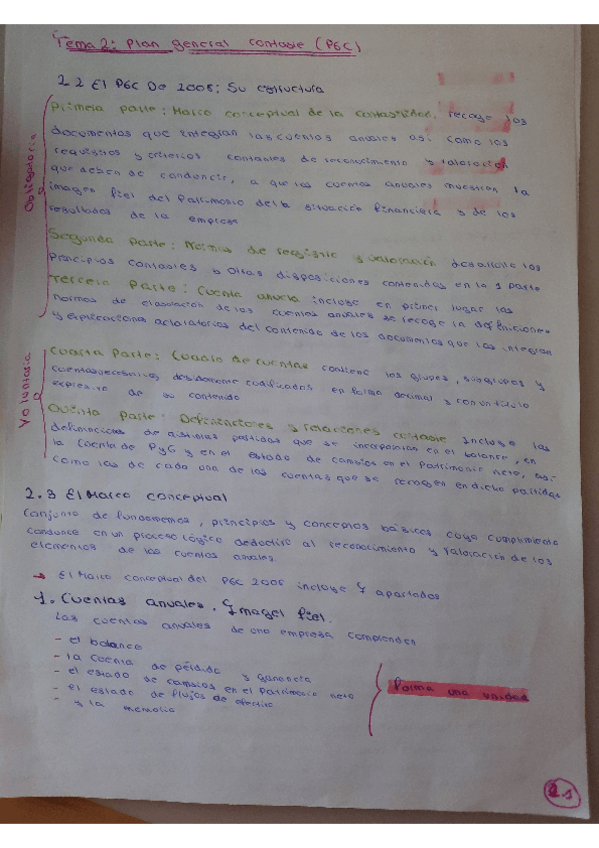 Tema 2: Plan general contable (PGC)
2.2 El PGC De 2008: Su estructura
Primera parte: Marco conceptual de la contabilidad, recoge los
documentos que integran las cuentas anuales así como los
requisitos y criterios contables de reconocimiento y valoración
que deben de conducir, a que las cuentas anuales muestren la
imagen fiel del Patrimonio de la situación financiera y de los
resultados de la empresa
Segunda parte: Normas de registro y valoración desarrolla los
Principios contables y otras disposiciones contenidas en la 1 parte
Tercera Parte: Cuenta anuela incluye en primer lugar las
normas de elaboración de las cuentas anuales se recoge la definiciones
y explicaciones aclaratorias del contenido de los documentos que las integran
Obligatoria
Cuarta Parte: Cuadro de cuentas contiene los grupos, subgrupos y
cuentas necesarios, debidamente codificados en forma decimal y con un título
expresivo de su contenido
Quinta Parte: Definiciones y relaciones contable Incluye las
definiciones de distintas partidas que se incorporan en el balance, en
la Cuenta de PyG y en el estado de cambios en el Patrimonio neto, así
como las de cada una de las cuentas que se recogen en dicha partidas
Voluntaria
2.3 El Marco conceptual
Conjunto de fundamentos, principios y conceptos básicos cuyo cumplimiento
conduce en un proceso lógico deductivo al reconocimiento y valoración de los
elementos de las cuentas anuales.
→ El Marco conceptual del PGC 2008 incluye 7 apartados
1. Cuentas anuales. Imagen fiel.
Las cuentas anuales de una empresa comprenden
- el balance
- la cuenta de pérdida y ganancia
- el estado de cambios en el Patrimonio neto
- el estado de flujos de efectivo
- y la memoria
Forma una unidad
2.1